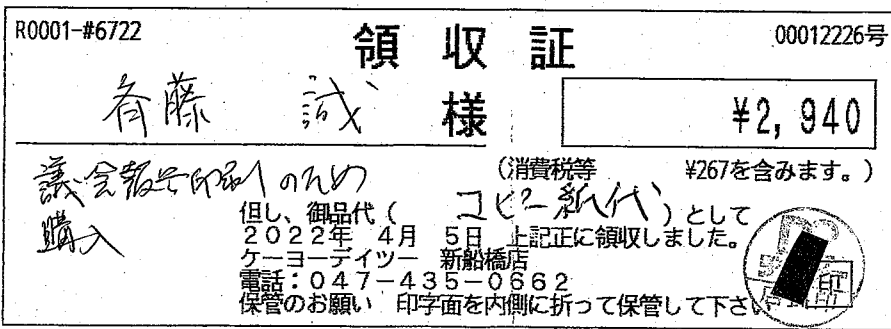 R0001-#6722
00012226号
領収証
斉藤 誠 様
¥2,940
(消費税等 ¥267を含みます。)
議会報告印刷のため
購入
但し、御品代(コピー紙代)として
2022年 4月 5日 上記正に領収しました。
ケーヨーデイツー 新船橋店
電話:047-435-0662
保管のお願い 印字面を内側に折って保管して下さい
印